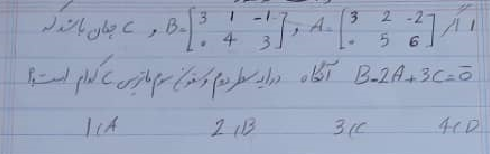 ا اگر A=[3 2 -2 / 0 5 6] , B=[3 1 -1 / 0 4 3] , و C چنان باشد که
B-2A+3C=0̄ آنگاه درایه سطر دوم و ستون سوم ماتریس C کدام است؟
1(A 2(B 3(C 4(D